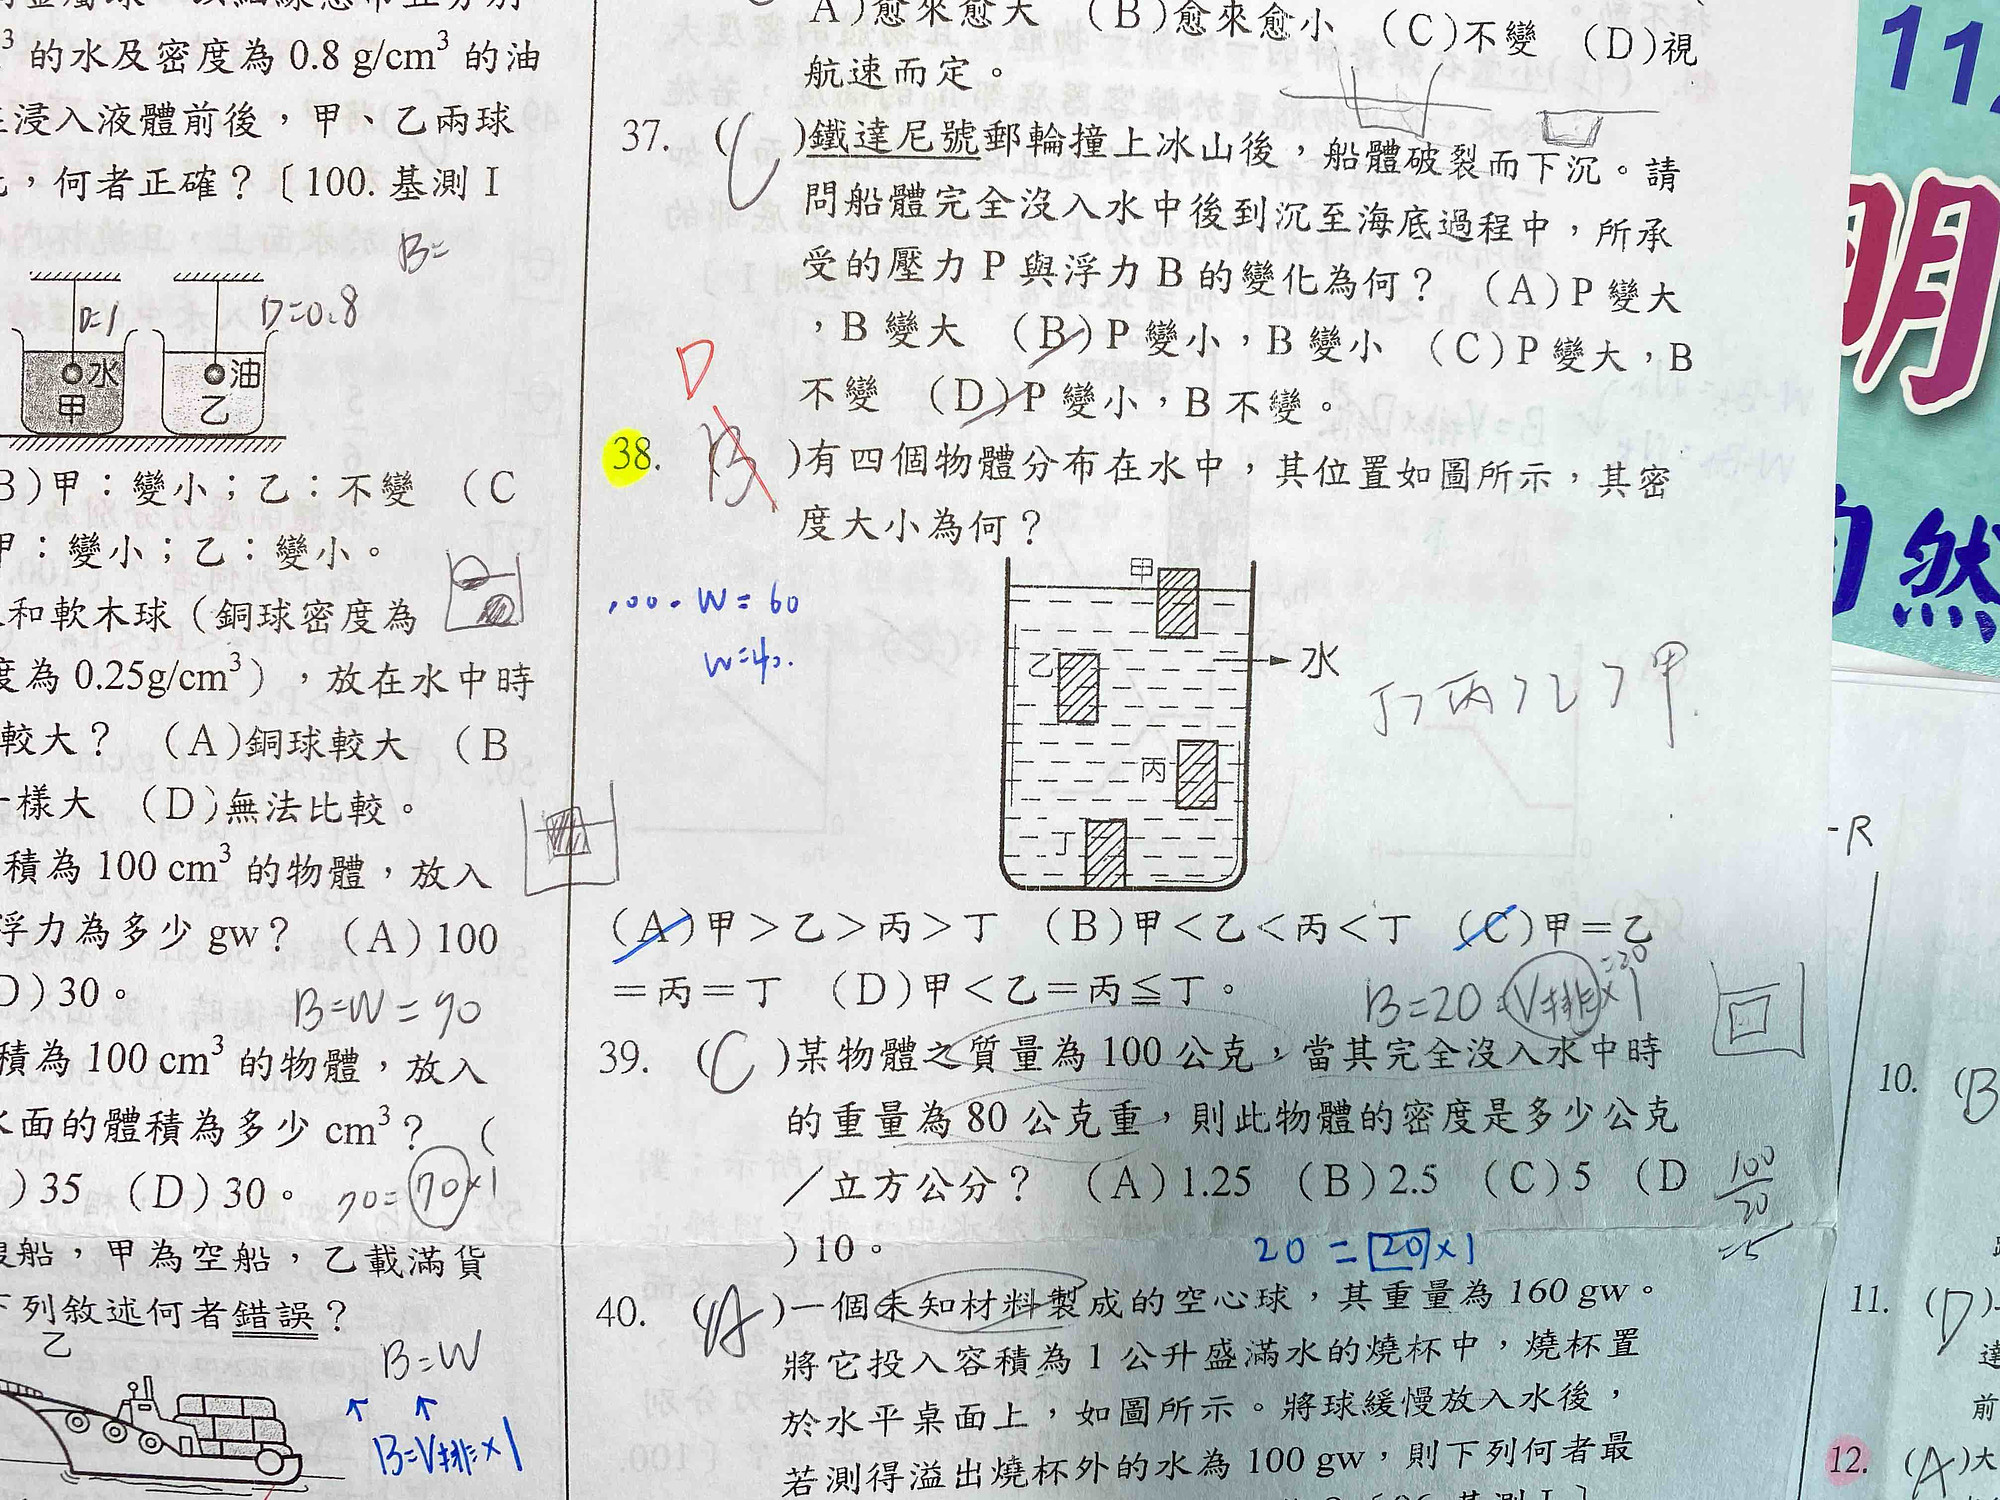 的水及密度為 0.8 g/cm³ 的油
浸入液體前後，甲、乙兩球
，何者正確？〔100. 基測 I
B=
D=1
D=0.8
水
甲
油
乙
B)甲：變小；乙：不變 （C
甲：變小；乙：變小。
和軟木球（銅球密度為
度為 0.25g/cm³），放在水中時
較大？ （A)銅球較大 （B
一樣大 （D)無法比較。
積為 100 cm³ 的物體，放入
浮力為多少 gw？ （A）100
D）30。
B=W=70
積為 100 cm³ 的物體，放入
水面的體積為多少 cm³？ （
）35 （D）30。
70=70×1
艘船，甲為空船，乙載滿貨
下列敘述何者錯誤？
乙
B=W
B=V排×1
A)愈來愈大 （B)愈來愈小 （C)不變 （D)視
航速而定。
37. （C )鐵達尼號郵輪撞上冰山後，船體破裂而下沉。請
問船體完全沒入水中後到沉至海底過程中，所承
受的壓力 P 與浮力 B 的變化為何？ （A)P 變大
，B 變大 （B)P 變小，B 變小 （C)P 變大，B
不變 （D)P 變小，B 不變。
D
38. B )有四個物體分布在水中，其位置如圖所示，其密
度大小為何？
100. W=60
W=40.
甲
乙
丙
丁
水
丁>丙>乙>甲
（A)甲＞乙＞丙＞丁 （B)甲＜乙＜丙＜丁 （C)甲＝乙
＝丙＝丁 （D)甲＜乙＝丙≦丁。
B=20=V排×1
=20
39. （C )某物體之質量為 100 公克，當其完全沒入水中時
的重量為 80 公克重，則此物體的密度是多少公克
／立方公分？ （A）1.25 （B）2.5 （C）5 （D
）10。
100
20
=5
20=20×1
40. （A )一個未知材料製成的空心球，其重量為 160 gw。
將它投入容積為 1 公升盛滿水的燒杯中，燒杯置
於水平桌面上，如圖所示。將球緩慢放入水後，
若測得溢出燒杯外的水為 100 gw，則下列何者最
11
明
然
-R
10. （B
11. （D）
達
前
12. （A）大